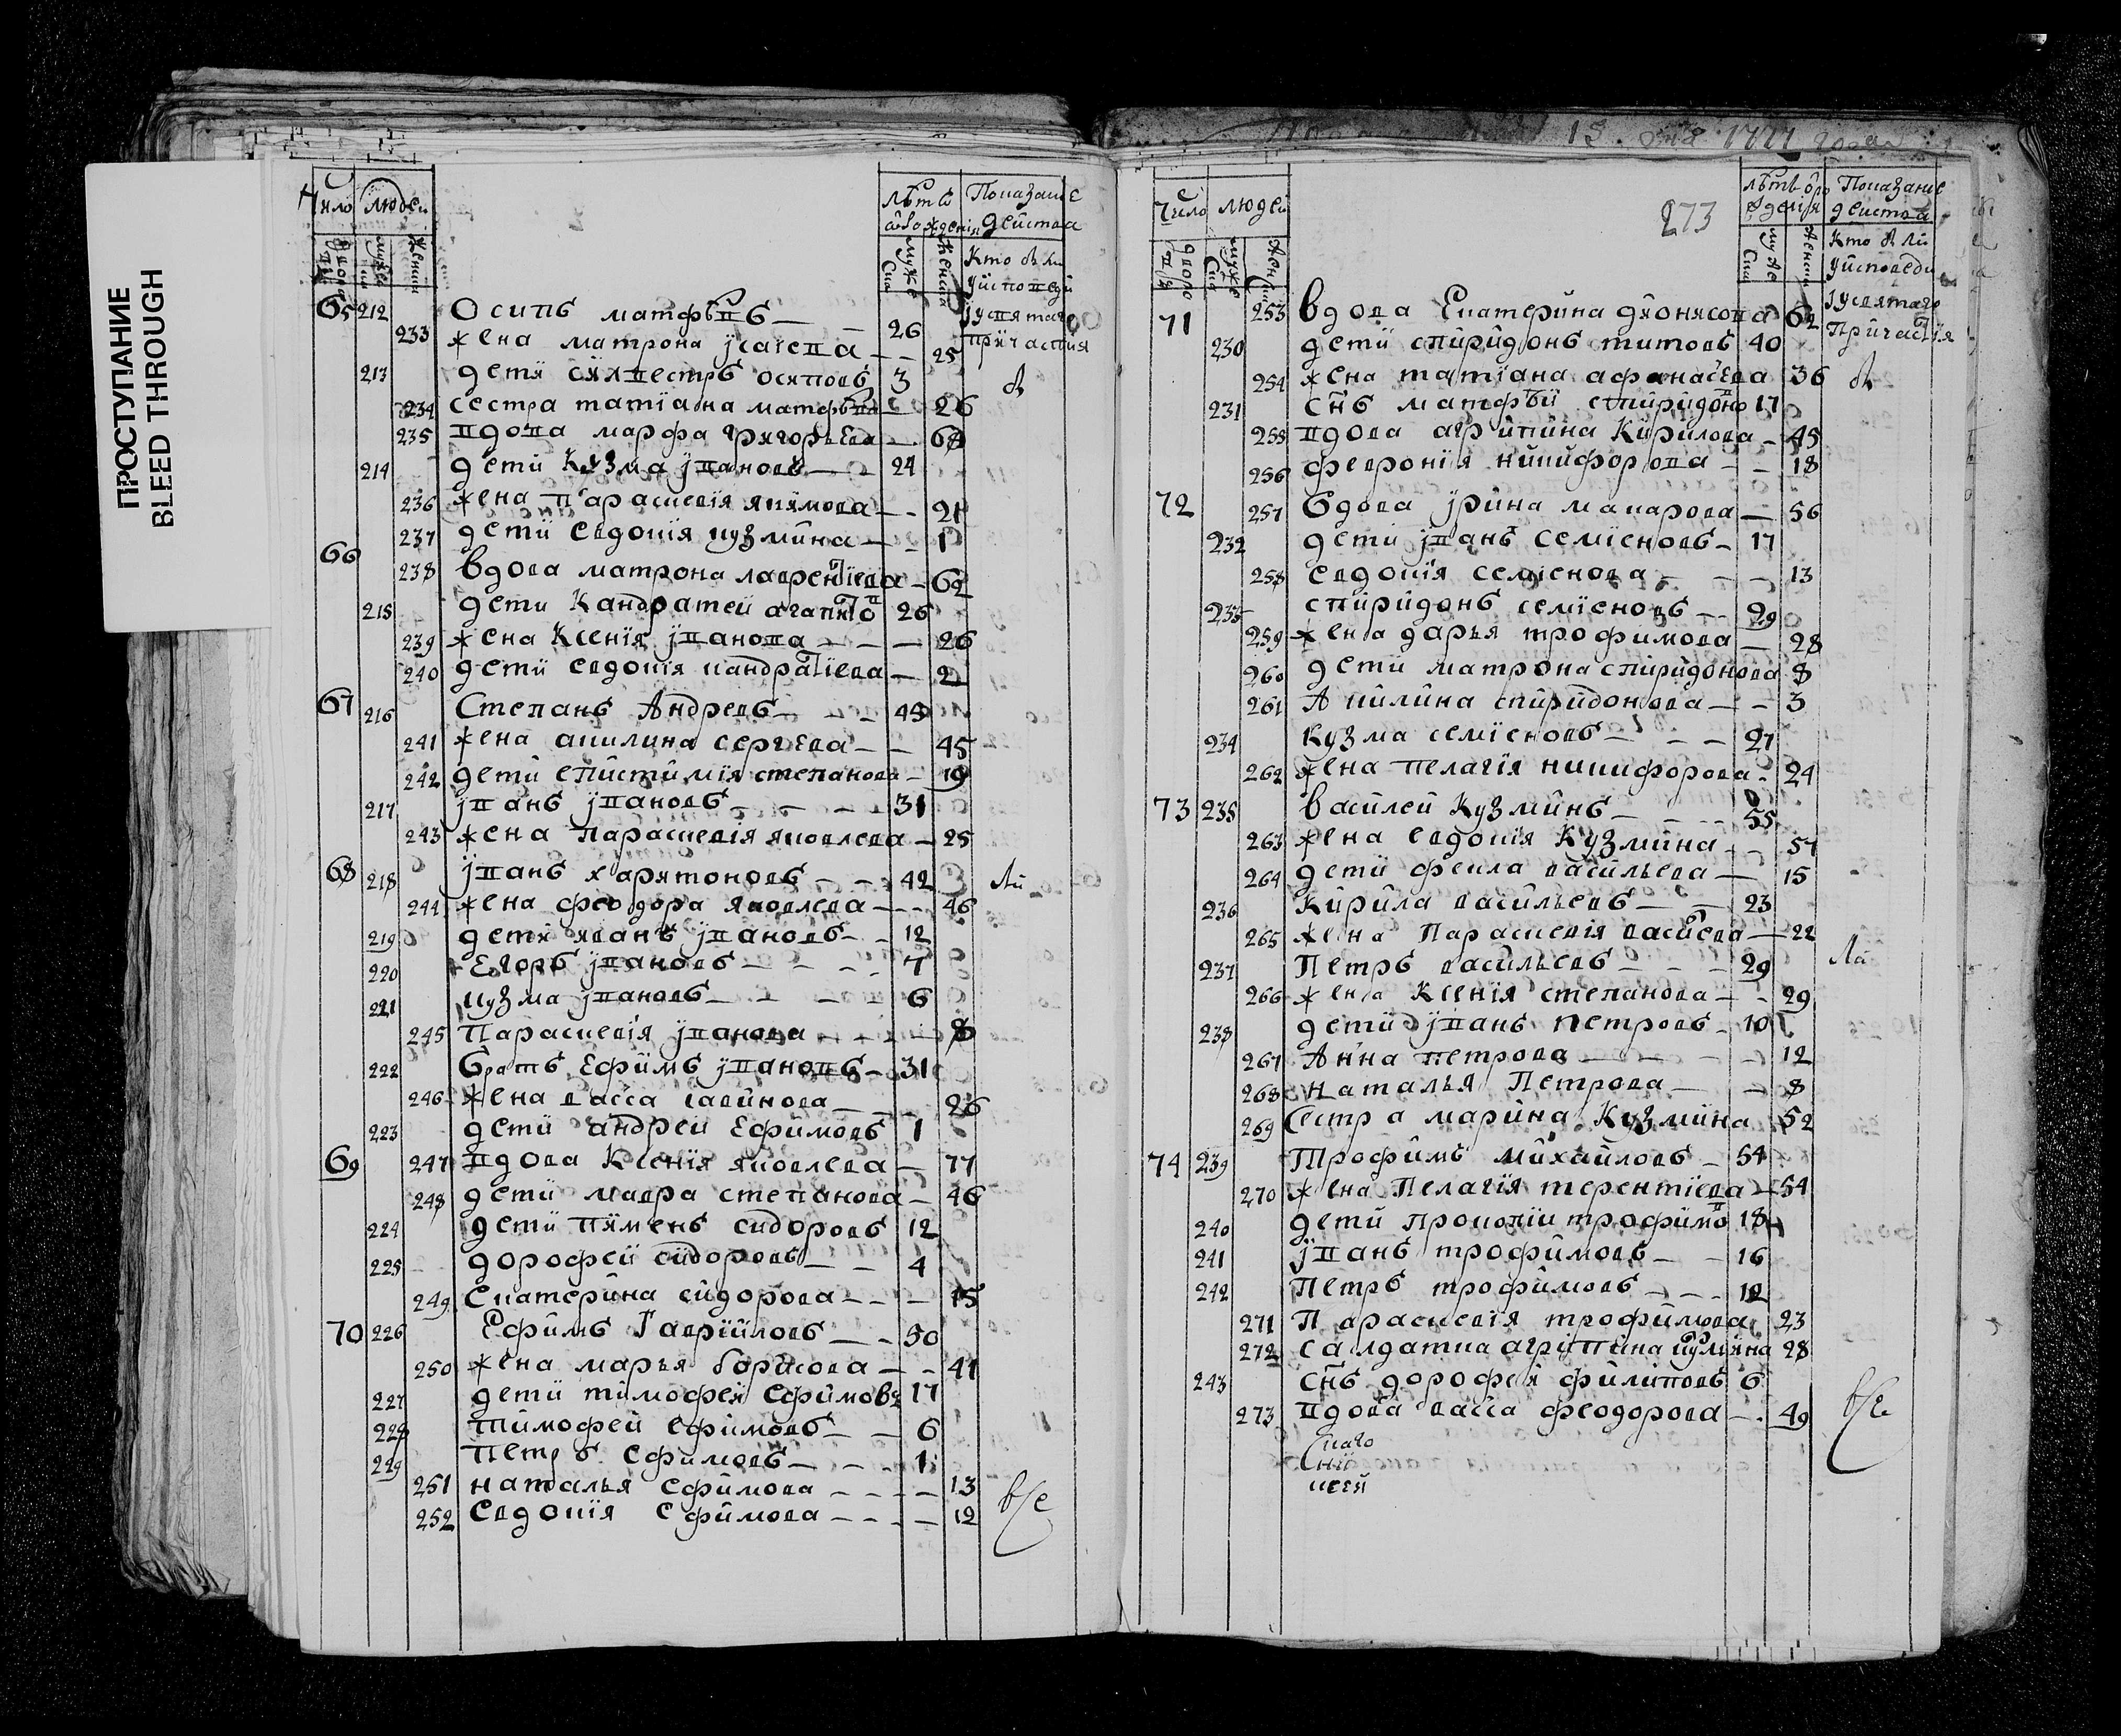 ПРОСТУПАНИЕ
BLEED THROUGH
Число людей лѣтъ от рожденія Показание действа
дворов мужеска женска мужеска женска Кто был у исповеди
65 212 Осипъ матфѣевъ 26 и у святаго
233 жена матрона исаіева 25 причастия
213 дети силвестръ осиповъ 3
234 сестра татіана матфѣева 26
235 вдова марфа григорьева 60
214 дети Кузма ивановъ 24
236 жена Параскевія якимова 21
237 дети Евдокія кузмина 1
66 238 вдова матрона лаврентіева 62
215 дети Кандратей агапито 26
239 жена Ксенія иванова 26
240 дети евдокія кандратіева 2
67 216 Степанъ Андреевъ 49
241 жена акилина сергѣева 45
242 дети епистимія степанова 19
217 иванъ ивановъ 31
243 жена параскевія яковлева 25
68 218 иванъ харитоновъ 42
244 жена феодора яковлева 46
219 дети иванъ ивановъ 12
220 Егоръ ивановъ 7
221 кузма ивановъ 6
245 Параскевія иванова 8
222 братъ Ефимъ ивановъ 31
246 жена васса савинова 26
223 дети андреи Ефимовъ 1
69 247 вдова Ксенія яковлева 77
248 дети мавра степанова 46
224 дети пименъ сидоровъ 12
225 дорофей сидоровъ 4
249 Екатерина сидорова 15
70 226 Ефимъ Гавриловъ 50
250 жена марья борисова 41
227 дети тимофей Ефимовъ 17
228 тимофей ефимовъ 6
229 Петръ Ефимовъ 1
251 наталья Ефимова 13
252 Евдокія Ефимова 12
все
273
Число людей лѣтъ от рождения Показание действа
дворов мужеска женска мужеска женска Кто был у исповеди
71 253 вдова Екатерина дионисова 62 и у святаго
230 дети спиридонъ титовъ 40 Причастія
254 жена татіана афанасѣва 36
231 снъ матфѣй спиридоно 17
255 вдова агрипина Кирилова 45
256 феврония никифорова 18
72 257 вдова ирина макарова 56
232 дети иванъ семіеновъ 17
258 евдокія семіенова 13
233 спиридонъ семіеновъ 29
259 жена дарья трофимова 28
260 дети матрона спиридонова 8
261 Акилина спиридонова 3
234 кузма семіеновъ 27
262 жена пелагія никифорова 24
73 235 василей Кузминъ 55
263 жена евдокія Кузмина 57
264 дети фекла васильева 15
236 Кирила васильевъ 23
265 жена Параскевія васіева 22
237 Петръ васильевъ 29
266 жена Ксенія степанова 29
238 дети иванъ петровъ 10
267 Анна петрова 12
268 наталья Петрова 8
269 Сестра марина Кузмина 52
74 239 Трофимъ михайловъ 54
270 жена Пелагія терентіева 54
240 дети прокопіи трофимо 18
241 иванъ трофимовъ 16
242 Петръ трофимовъ 12
271 Параскевія трофимова 23
272 салдатка агрипина кузмина 28
243 снъ дорофей филиповъ 6
273 вдова васса феодорова 49
все